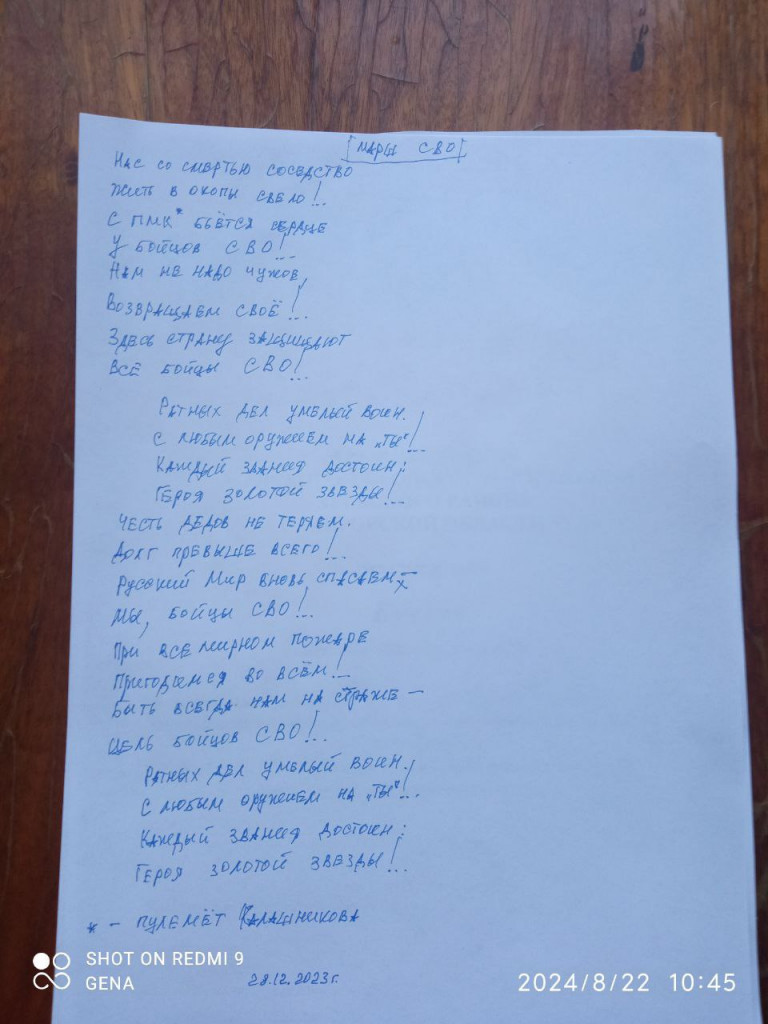 МАРШ СВО
Нас со смертью соседство
Жить в окопы свело!..
С ПМК* бьётся сердце
У бойцов СВО!..
Нам не надо чужов,
Возвращаем своё!..
Здесь страну защищают
Всё бойцы СВО!..
Ратных дел умелый воин.
С любым оружием на „ты"!..
Каждый звания достоин:
Героя золотой звезды!..
Честь дедов не теряем.
Долг превыше всего!..
Русский Мир вновь спасаем –
Мы, бойцы СВО!..
При всемирном пожаре
Пригодимся во всём!..
Быть всегда нам на страже –
Цель бойцов СВО!..
Ратных дел умелый воин.
С любым оружием на „ты"!..
Каждый звания достоин:
Героя золотой звезды!..
* – пулемёт Калашникова
28.12.2023г.
SHOT ON REDMI 9
GENA
2024/8/22 10:45